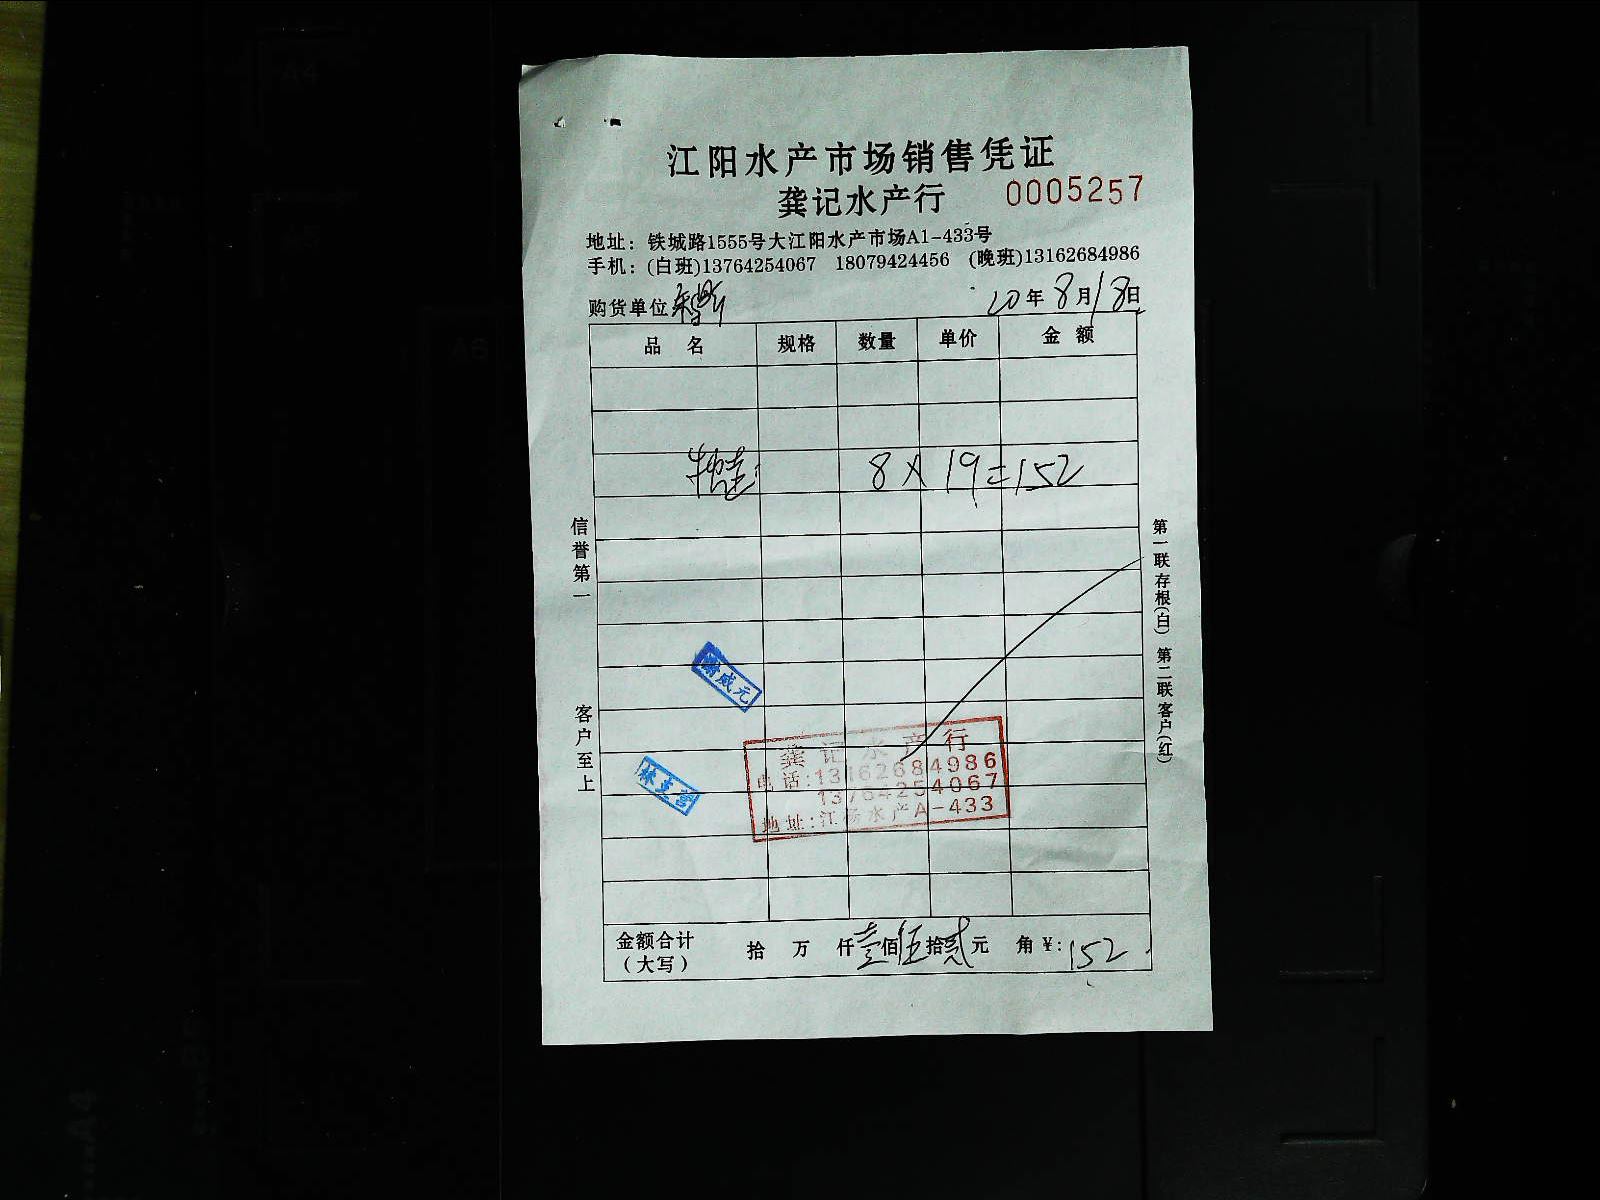 江阳水产市场销售凭证
龚记水产行 0005257
地址：铁城路1555号大江阳水产市场A1-433号
手机：(白班)13764254067 18079424456 (晚班)13162684986
购货单位 20年8月18日
品名 规格 数量 单价 金额
8×19=152
信誉第一
客户至上
第一联存根(白) 第二联客户(红)
威元
林
龚记水产行
电话:13162684986
13764254067
地址:江杨水产A-433
金额合计 拾 万 仟壹佰伍拾贰元 角 ¥:152
(大写)
A4
A5
A6
A4